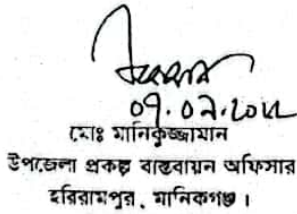 মোঃ মানিকুজ্জামান
উপজেলা প্রকল্প বাস্তবায়ন অফিসার
হরিরামপুর, মানিকগঞ্জ।